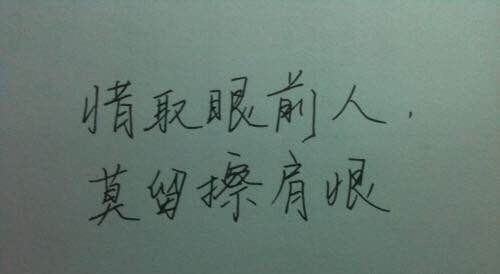 惜取眼前人.
莫留擦肩恨